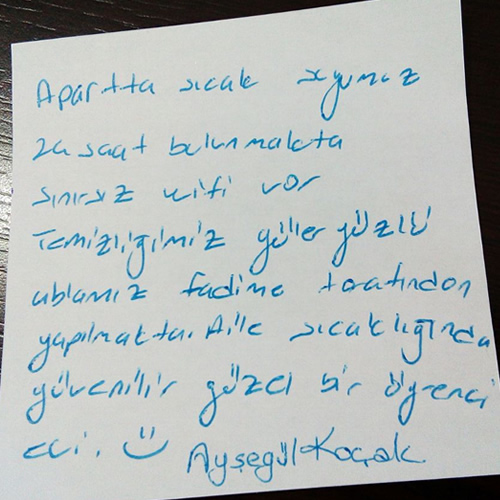 Apartta sıcak suyumuz
24 saat bulunmakta
sınırsız wifi var
Temizliğimiz güler yüzlü
ablamız fadime tarafından
yapılmakta. Aile sıcaklığında
güvenilir güzel bir öğrenci
evi. :)
Ayşegül Koçak